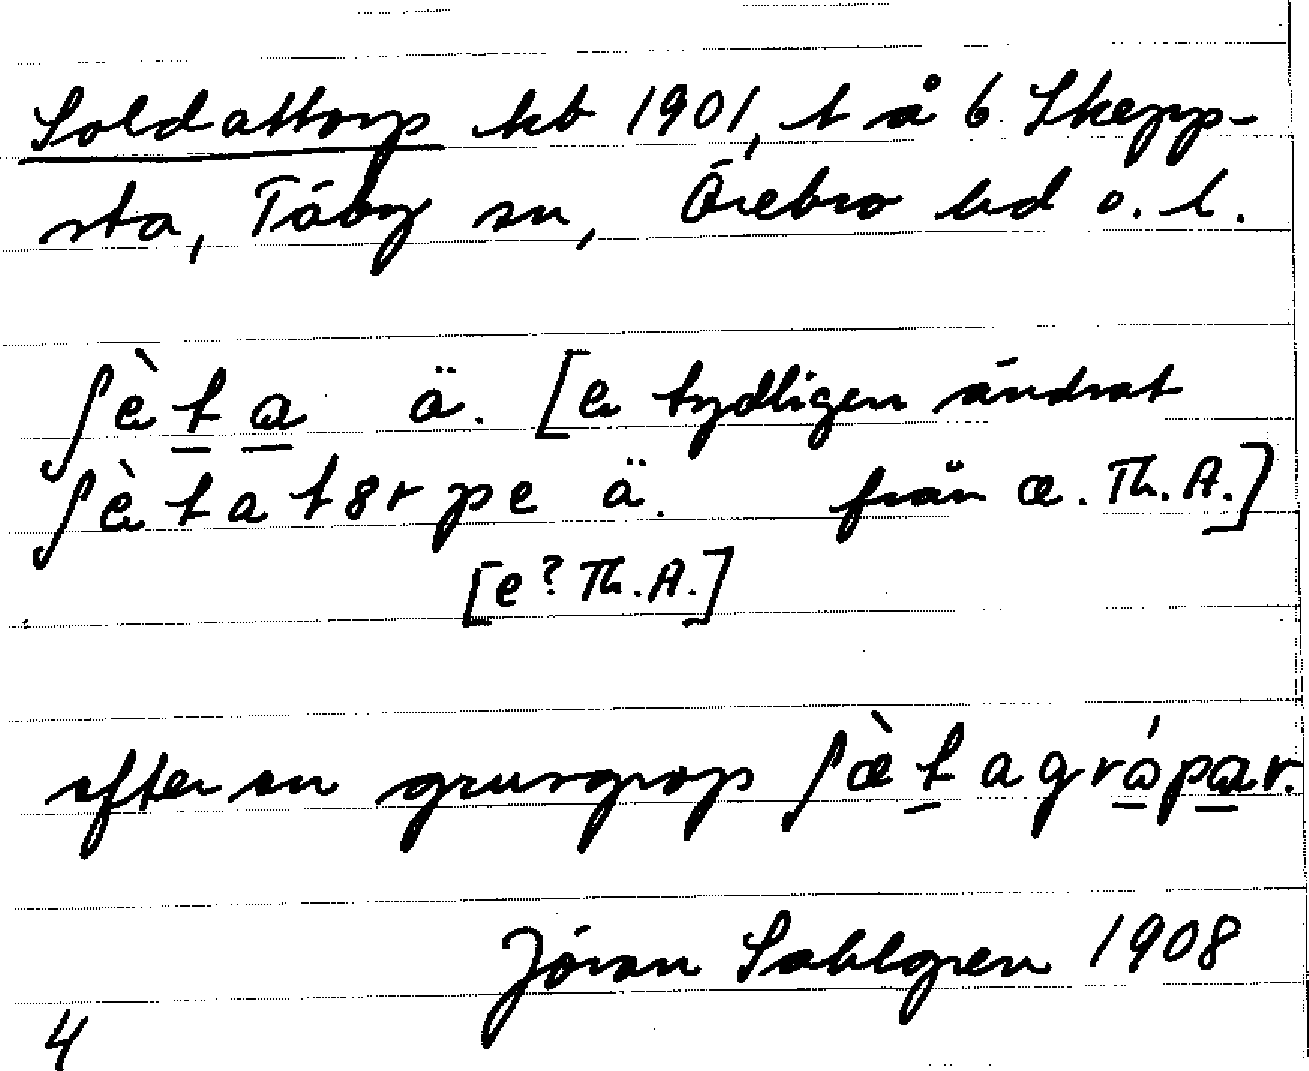 Soldattorp kb 1901, t å 6 Skepp-
sta, Täby sn, Örebro hd o. l.
ʃèta ä. [e tydligen ändrat
ʃètatɞrpe ä. från æ. Th.A.]
[e? Th.A.]
efter en grusgrop ʃætagrópar.
Jöran Sahlgren 1908
4